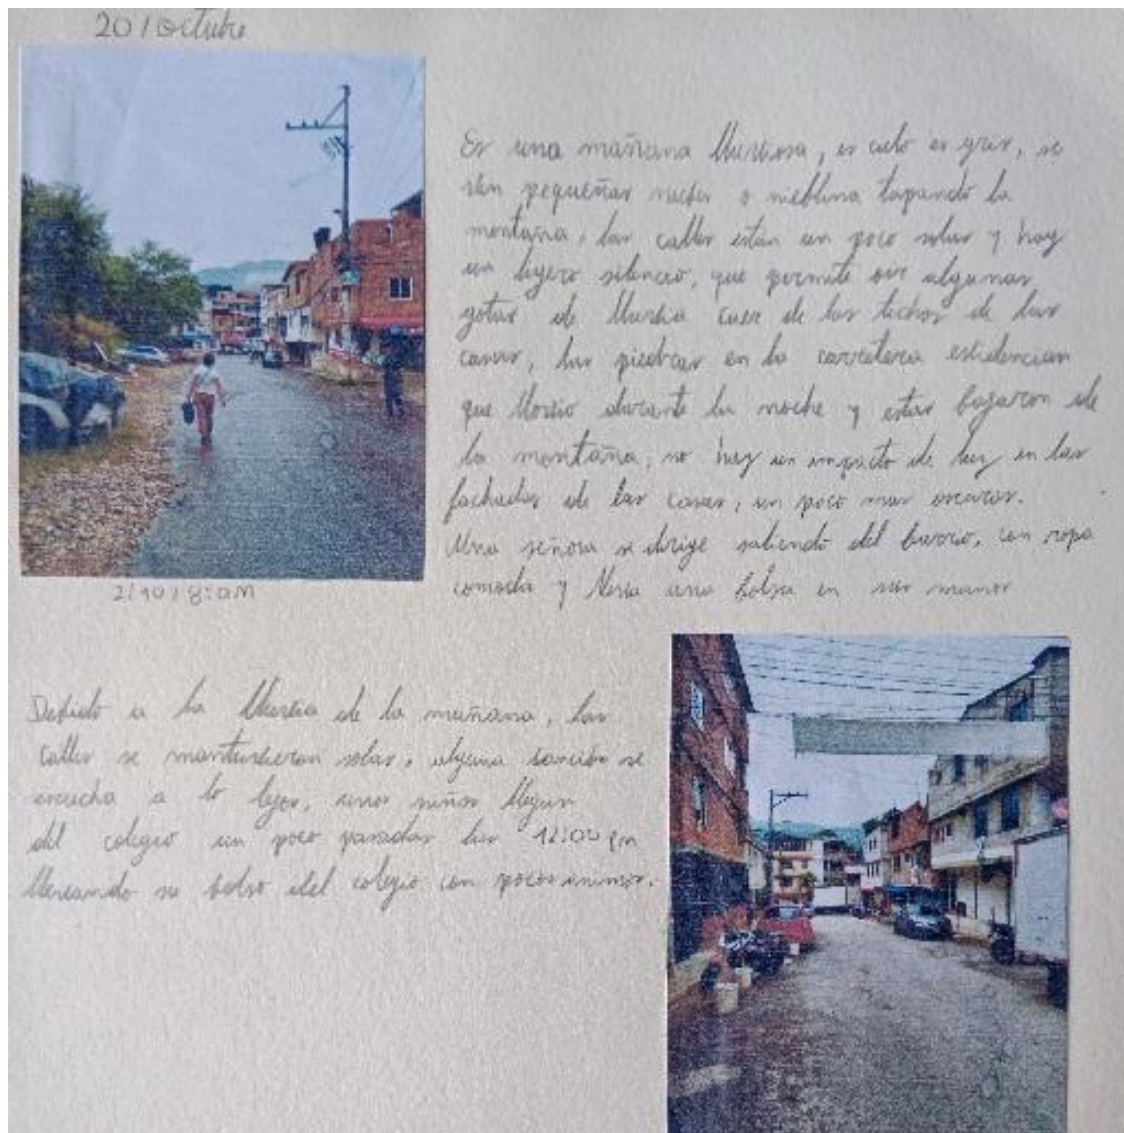 20/octubre
Es una mañana lluviosa, es cielo es gris, se
ven pequeñas nubes o neblina tapando la
montaña, las calles estan un poco solas y hay
un ligero silencio, que permite oir algunas
gotas de lluvia caer de los techos de las
casas, las piedras en la carretera evidencian
que llovio durante la noche y estas bajaron de
la montaña, no hay un impacto de luz en las
fachadas de las casas, un poco mas oscuras.
Una señora se dirige saliendo del barrio, con ropa
comoda y lleva una bolsa en sus manos
2/10/8:am
Debido a la lluvia de la mañana, las
calles se mantuvieron solas, alguna canción se
escucha a lo lejos, unos niños llegan
del colegio un poco pasadas las 12:00 pm
llevando su bolso del colegio con pocos animos.